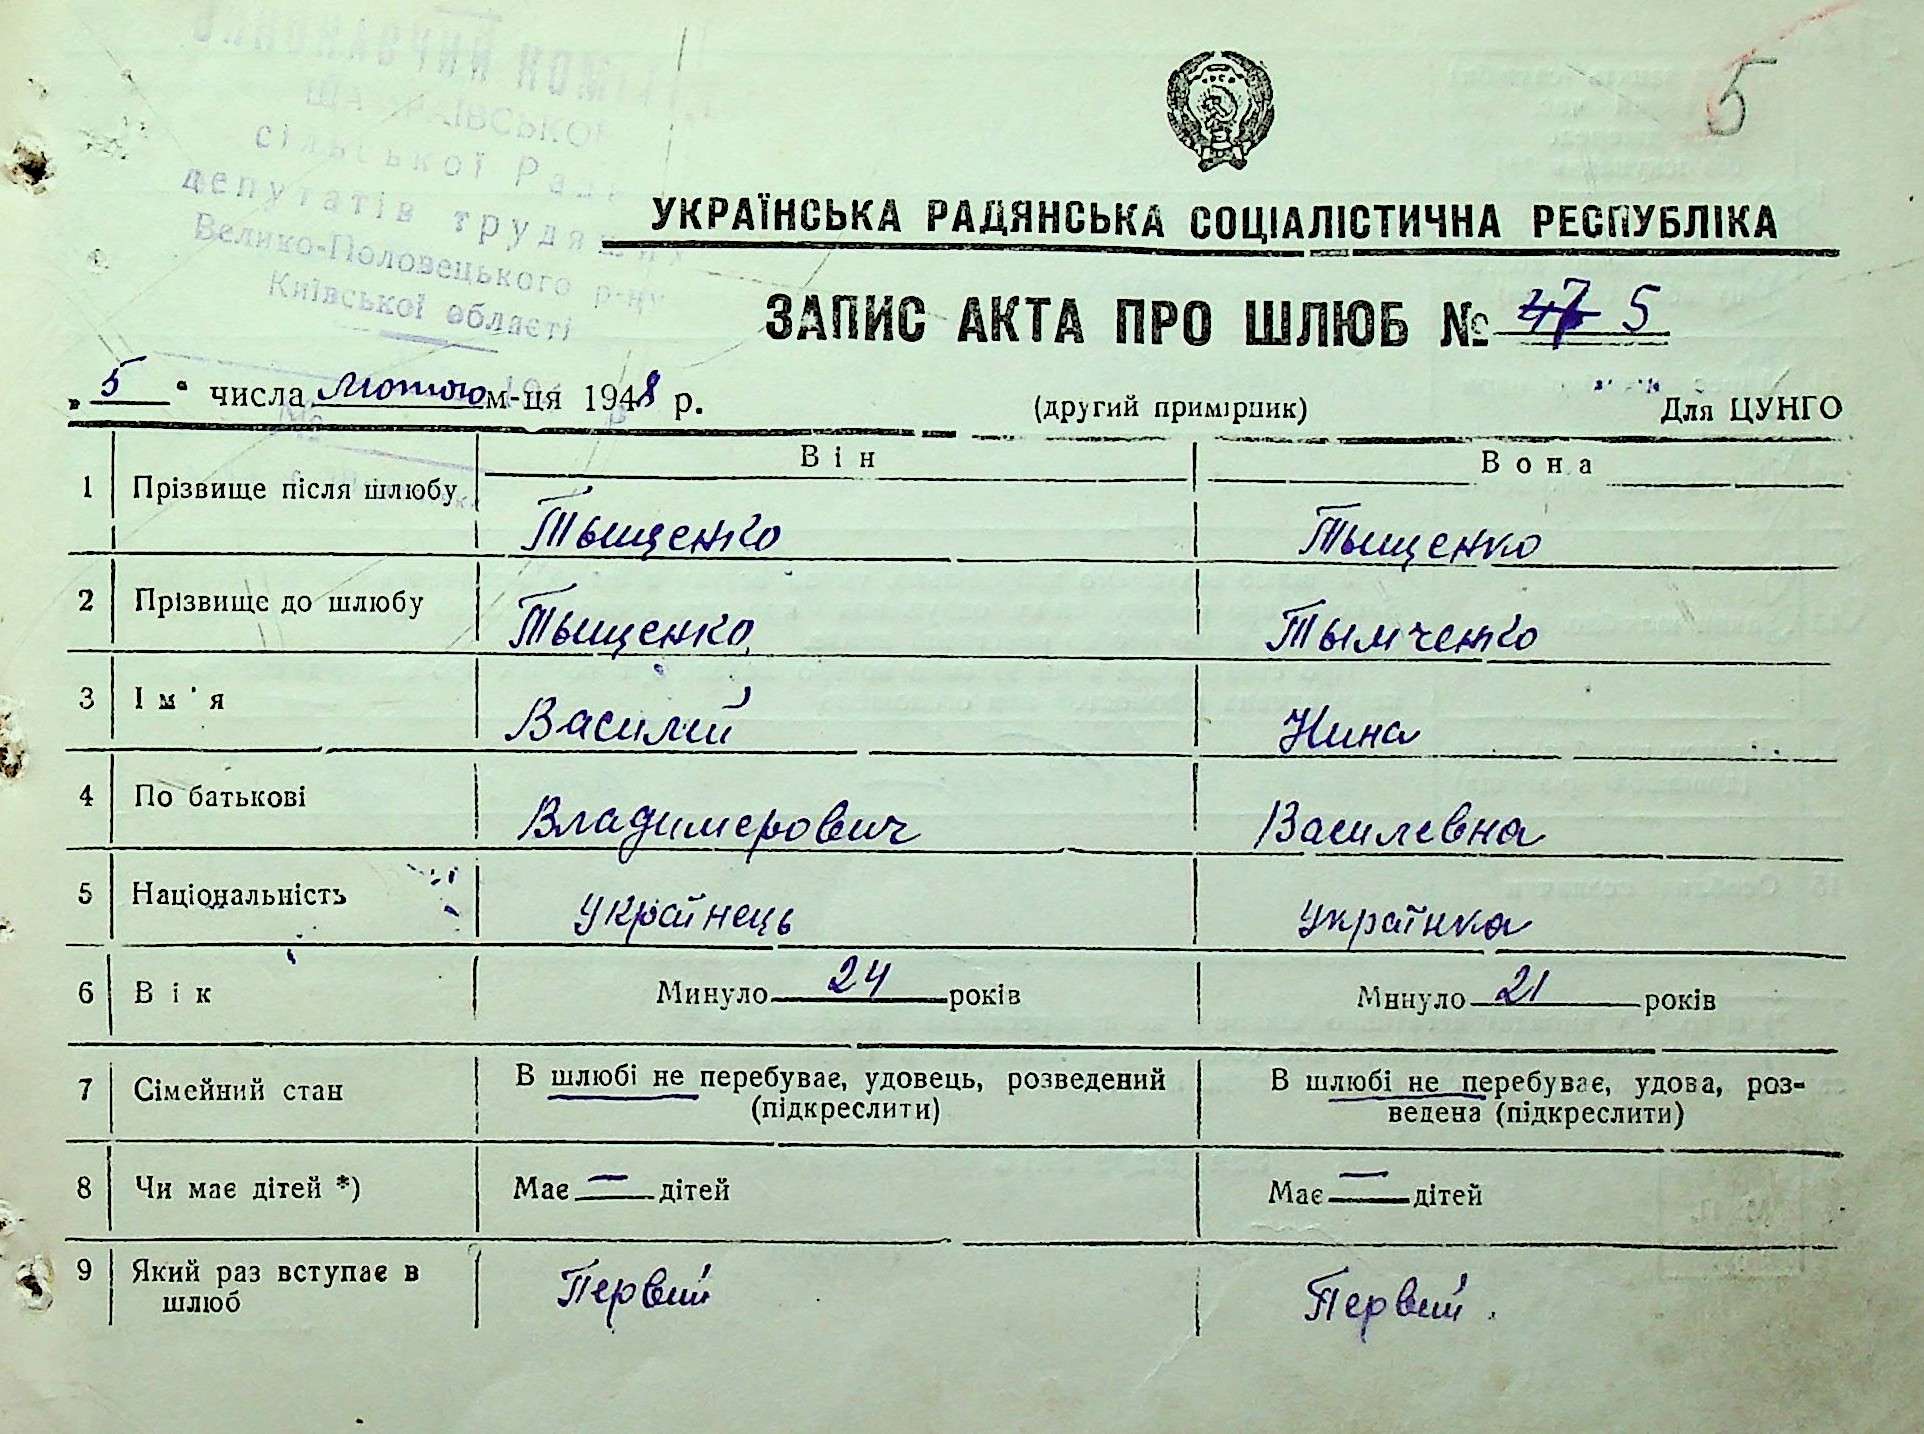 5
комітет
сільської Ради
депутатів трудящих
Велико-Половецького р-ну
Київської області
УКРАЇНСЬКА РАДЯНСЬКА СОЦІАЛІСТИЧНА РЕСПУБЛІКА
ЗАПИС АКТА ПРО ШЛЮБ № 47 5
„ 5 “ числа Лютого м-ця 1948 р. (другий примірник) Для ЦУНГО
Він Вона
1 Прізвище після шлюбу Тыщенко Тыщенко
2 Прізвище до шлюбу Тыщенко Тымченко
3 Ім'я Василий Нина
4 По батькові Владимерович Василевна
5 Національність Українець Українка
6 Вік Минуло 24 років Минуло 21 років
7 Сімейний стан В шлюбі не перебуває, удовець, розведений В шлюбі не перебуває, удова, роз-
(підкреслити) ведена (підкреслити)
8 Чи має дітей *) Має — дітей Має — дітей
9 Який раз вступає в Первий Первий.
шлюб